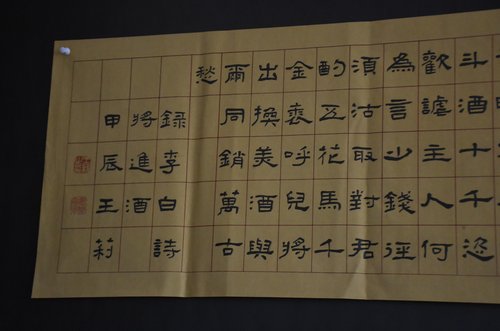 斗酒十千恣
歡謔主人何
為言少錢徑
須沽取對君
酌五花馬千
金裘呼兒將
出換美酒與
爾同銷萬古
愁
錄李白詩
將進酒
甲辰王莉